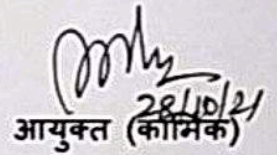 28/10/21
आयुक्त (कार्मिक)